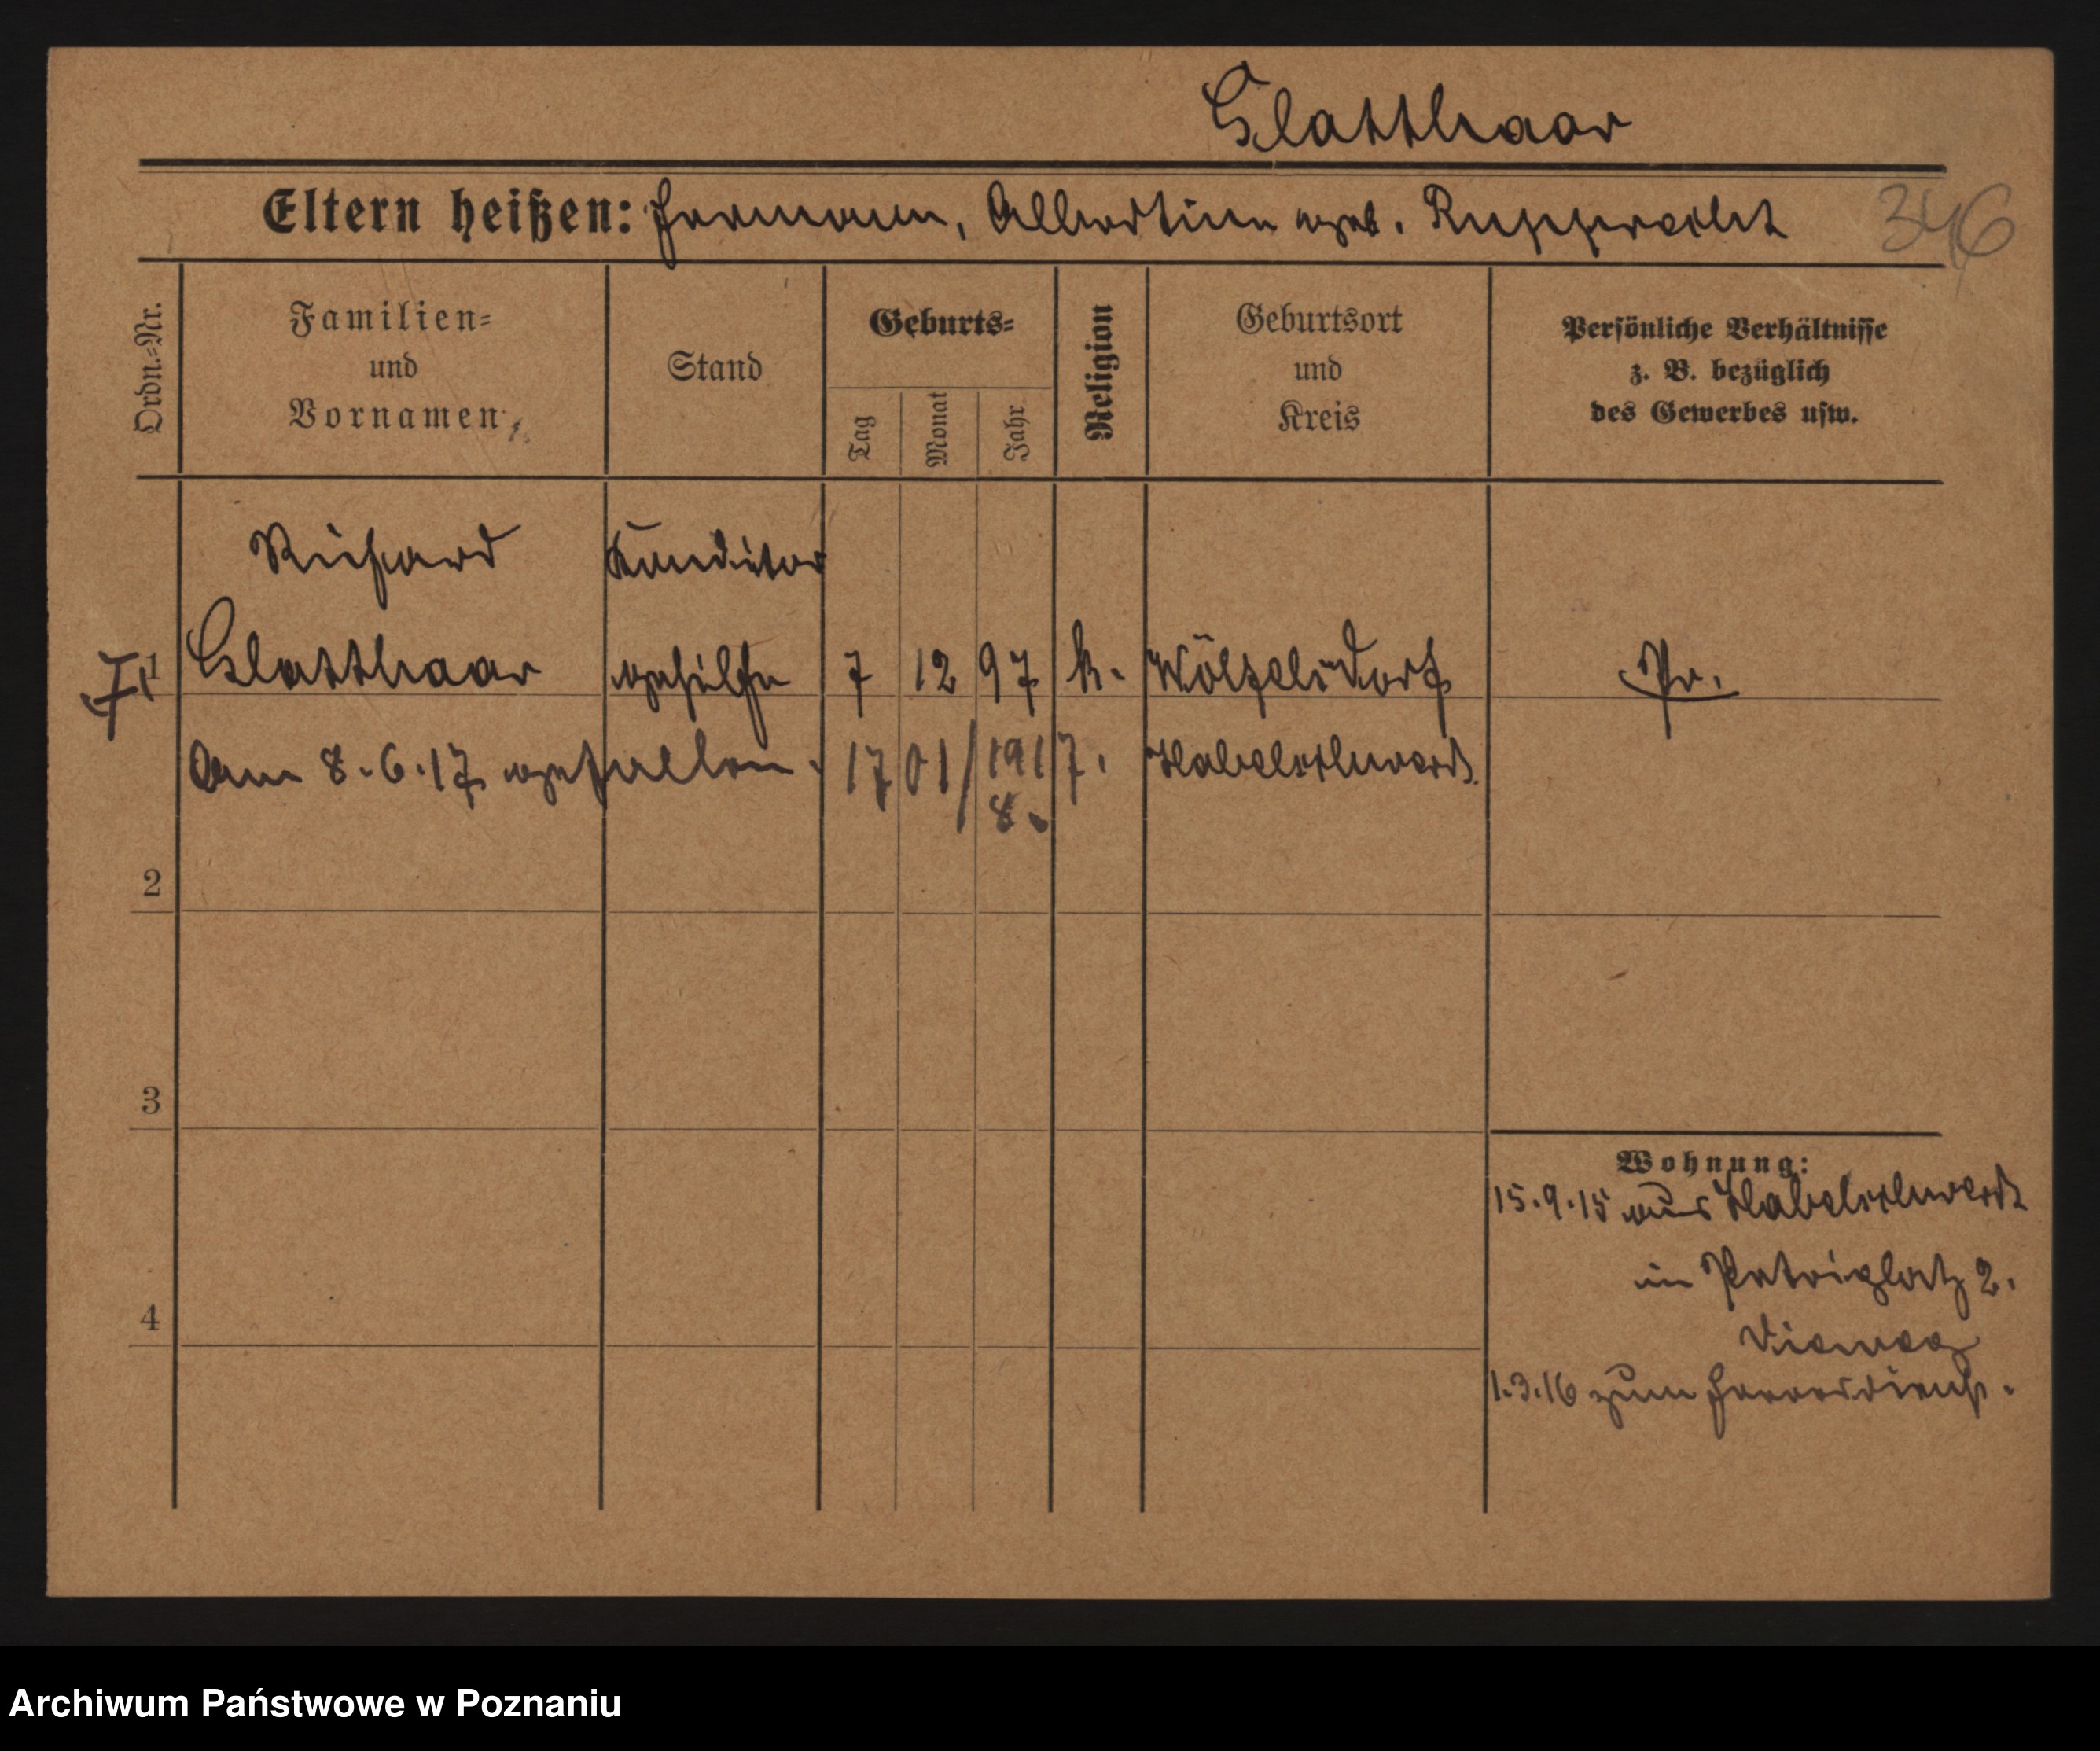 Glatthaar
Eltern heißen: Hermann, Albertine geb. Rupprecht
346
Ordn.-Nr.
Familien-
und
Vornamen
Stand
Geburts-
Tag
Monat
Jahr
Religion
Geburtsort
und
Kreis
Persönliche Verhältnisse
z. B. bezüglich
des Gewerbes usw.
Richard Konditor
1 Glatthaar gehilfe 7 12 97 k. Wölfelsdorf Pr.
Am 8.6.17 gefallen. 1701/1917. Habelschwerdt
8.
2
3
4
Wohnung:
15.9.15 aus Habelschwerdt
in Petriplatz 2.
1.3.16 zum Heeresdienst.
Archiwum Państwowe w Poznaniu